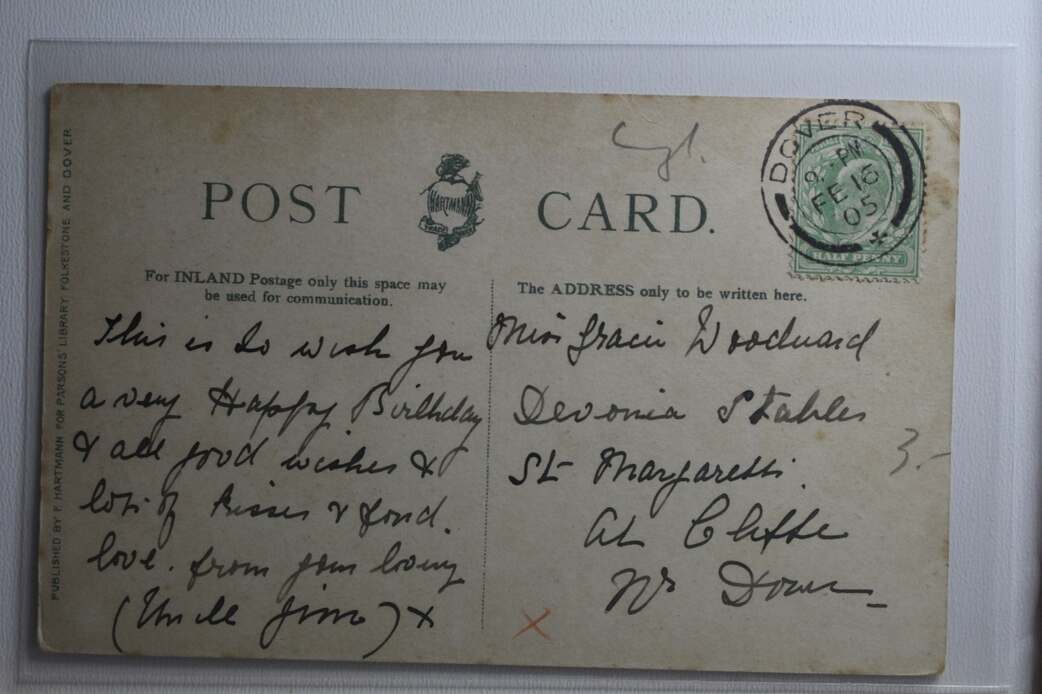 POST CARD.
HARTMANN
TRADE MARK
DOVER
9 - PM
FE 16
05
HALF PENNY
For INLAND Postage only this space may
be used for communication.
The ADDRESS only to be written here.
This is to wish you
a very Happy Birthday
& all good wishes &
lots of kisses & fond.
love. from your loving
(Uncle Jim) x
Miss Gracie Woodward
Devonia Stables
St Margarets.
At Cliffe
Nr Dover
3.-
x
PUBLISHED BY F. HARTMANN FOR PARSONS' LIBRARY FOLKESTONE AND DOVER